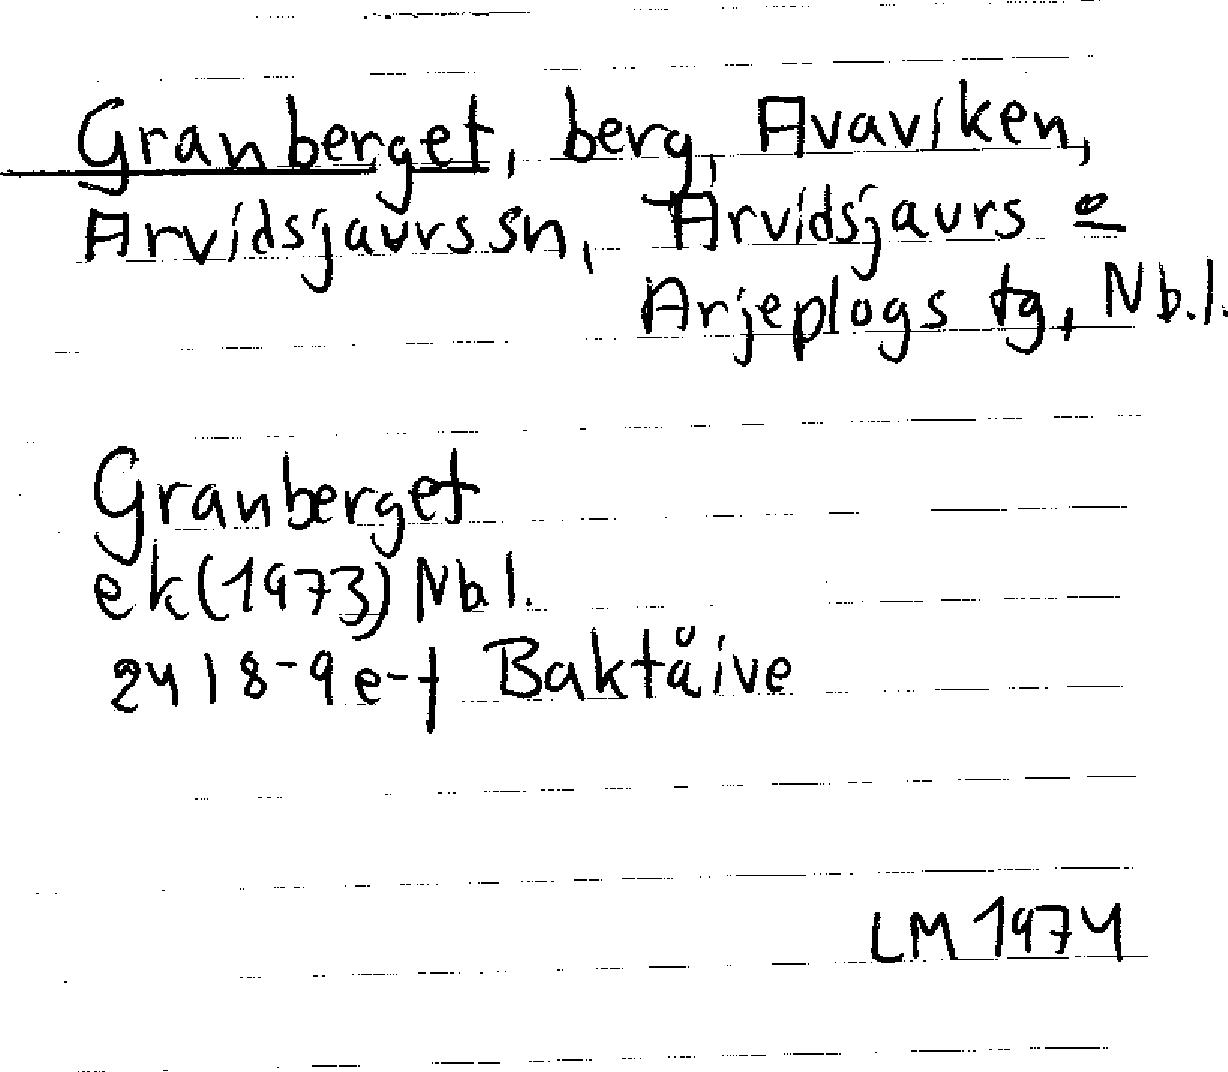 Granberget, berg, Avaviken,
Arvidsjaurs sn, Arvidsjaurs o
Arjeplogs tg, Nb.l.
Granberget
ek (1973) Nb.l.
2418-9 e-f Baktåive
LM 1974